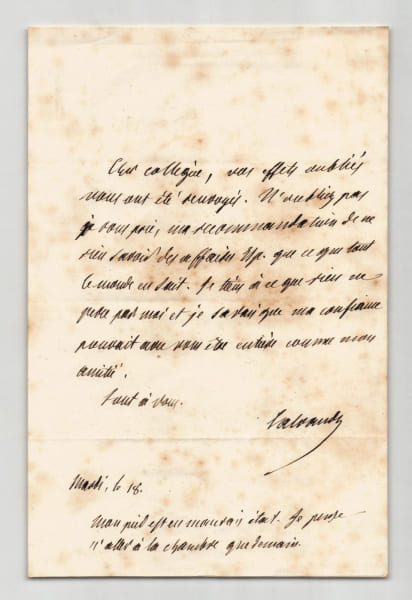 Cher collègue, vos effets oubliés
vous ont été renvoyés. N'oubliez pas
je vous prie, ma recommandation de ne
rien savoir des affaires Esp. que ce que tout
le monde en sait. Je tiens à ce que rien ne
perce par moi et je savais que ma confiance
pouvait avec vous être entière comme mon
amitié.
Tout à vous.
Salvandy
Mardi, le 18.
Mon pied est en mauvais état. Je pense
n'aller à la chambre que demain.